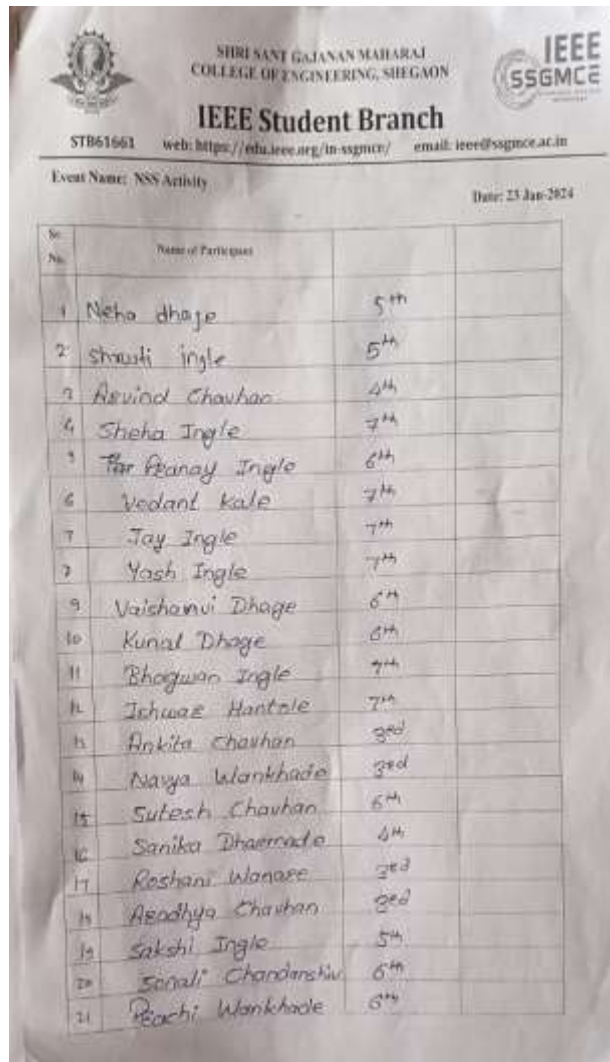 SHRI SANT GAJANAN MAHARAJ
COLLEGE OF ENGINEERING, SHEGAON
IEEE
SSGMCE
IEEE Student Branch
STB61661 web: https://edu.ieee.org/in-ssgmce/ email: ieee@ssgmce.ac.in
Event Name: NSS Activity
Date: 23 Jan-2024
Sr. No. Name of Participant
1 Neha dhage 5th
2 Shruti ingle 5th
3 Arvind Chavhan 4th
4 Sneha Ingle 7th
5 Pranay Ingle 6th
6 Vedant Kale 7th
7 Jay Ingle 7th
8 Yash Ingle 7th
9 Vaishanvi Dhage 6th
10 Kunal Dhage 6th
11 Bhagwan Ingle 7th
12 Ishwar Hantole 7th
13 Ankita Chavhan 3rd
14 Navya Wankhade 3rd
15 Sutesh Chavhan 6th
16 Sanika 4th
17 Roshani Wanare 3rd
18 Aradhya Chavhan 3rd
19 Sakshi Ingle 5th
20 Sonali Chandanshiv 6th
21 Prachi Wankhade 6th